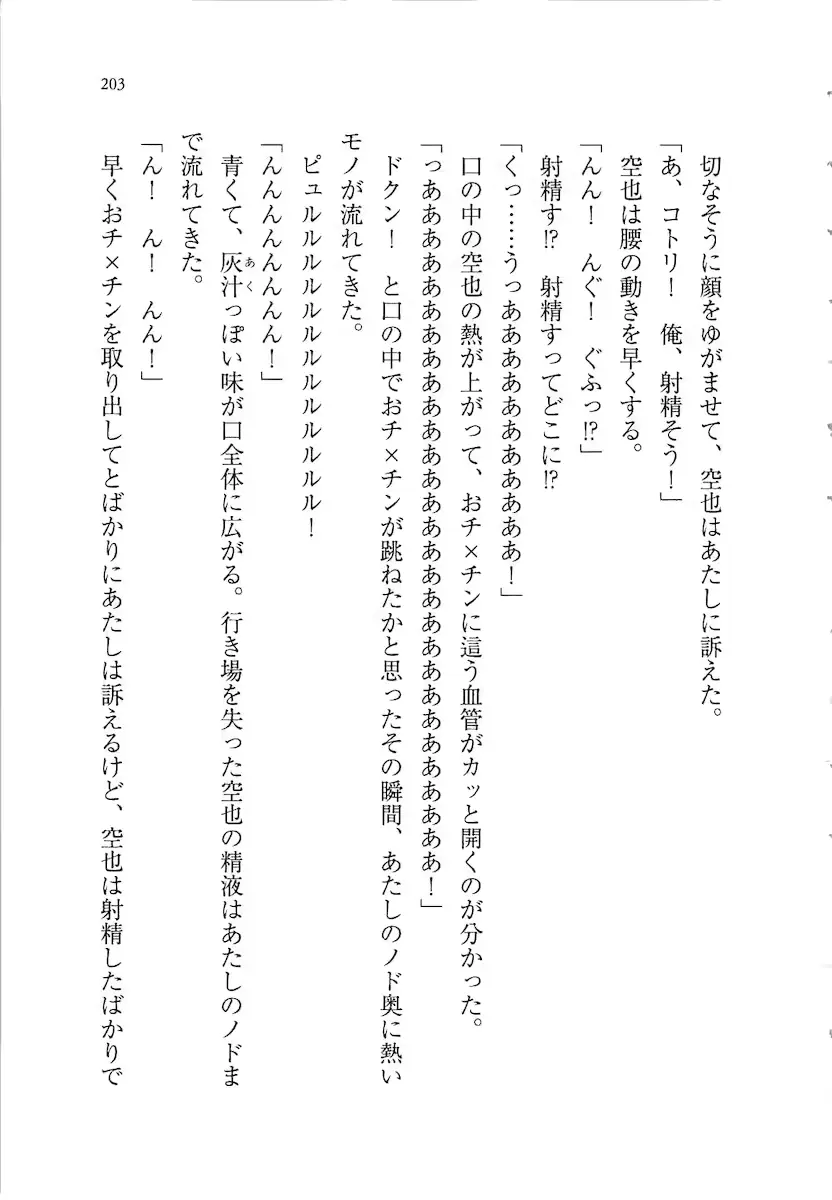 203
切なそうに顔をゆがませて、空也はあたしに訴えた。
「あ、コトリ！　俺、射精そう！」
空也は腰の動きを早くする。
「んん！　んぐ！　ぐふっ!?」
射精す!?　射精すってどこに!?
「くっ……うっあああああああああああ！」
口の中の空也の熱が上がって、おチ×チンに這う血管がカッと開くのが分かった。
「っああああああああああああああああああああああああああああああ！」
ドクン！　と口の中でおチ×チンが跳ねたかと思ったその瞬間、あたしのノド奥に熱い
モノが流れてきた。
ピュルルルルルルルルルルルルル！
「んんんんんんんんん！」
青くて、灰汁っぽい味が口全体に広がる。行き場を失った空也の精液はあたしのノドま
で流れてきた。
「ん！　ん！　んん！」
早くおチ×チンを取り出してとばかりにあたしは訴えるけど、空也は射精したばかりで